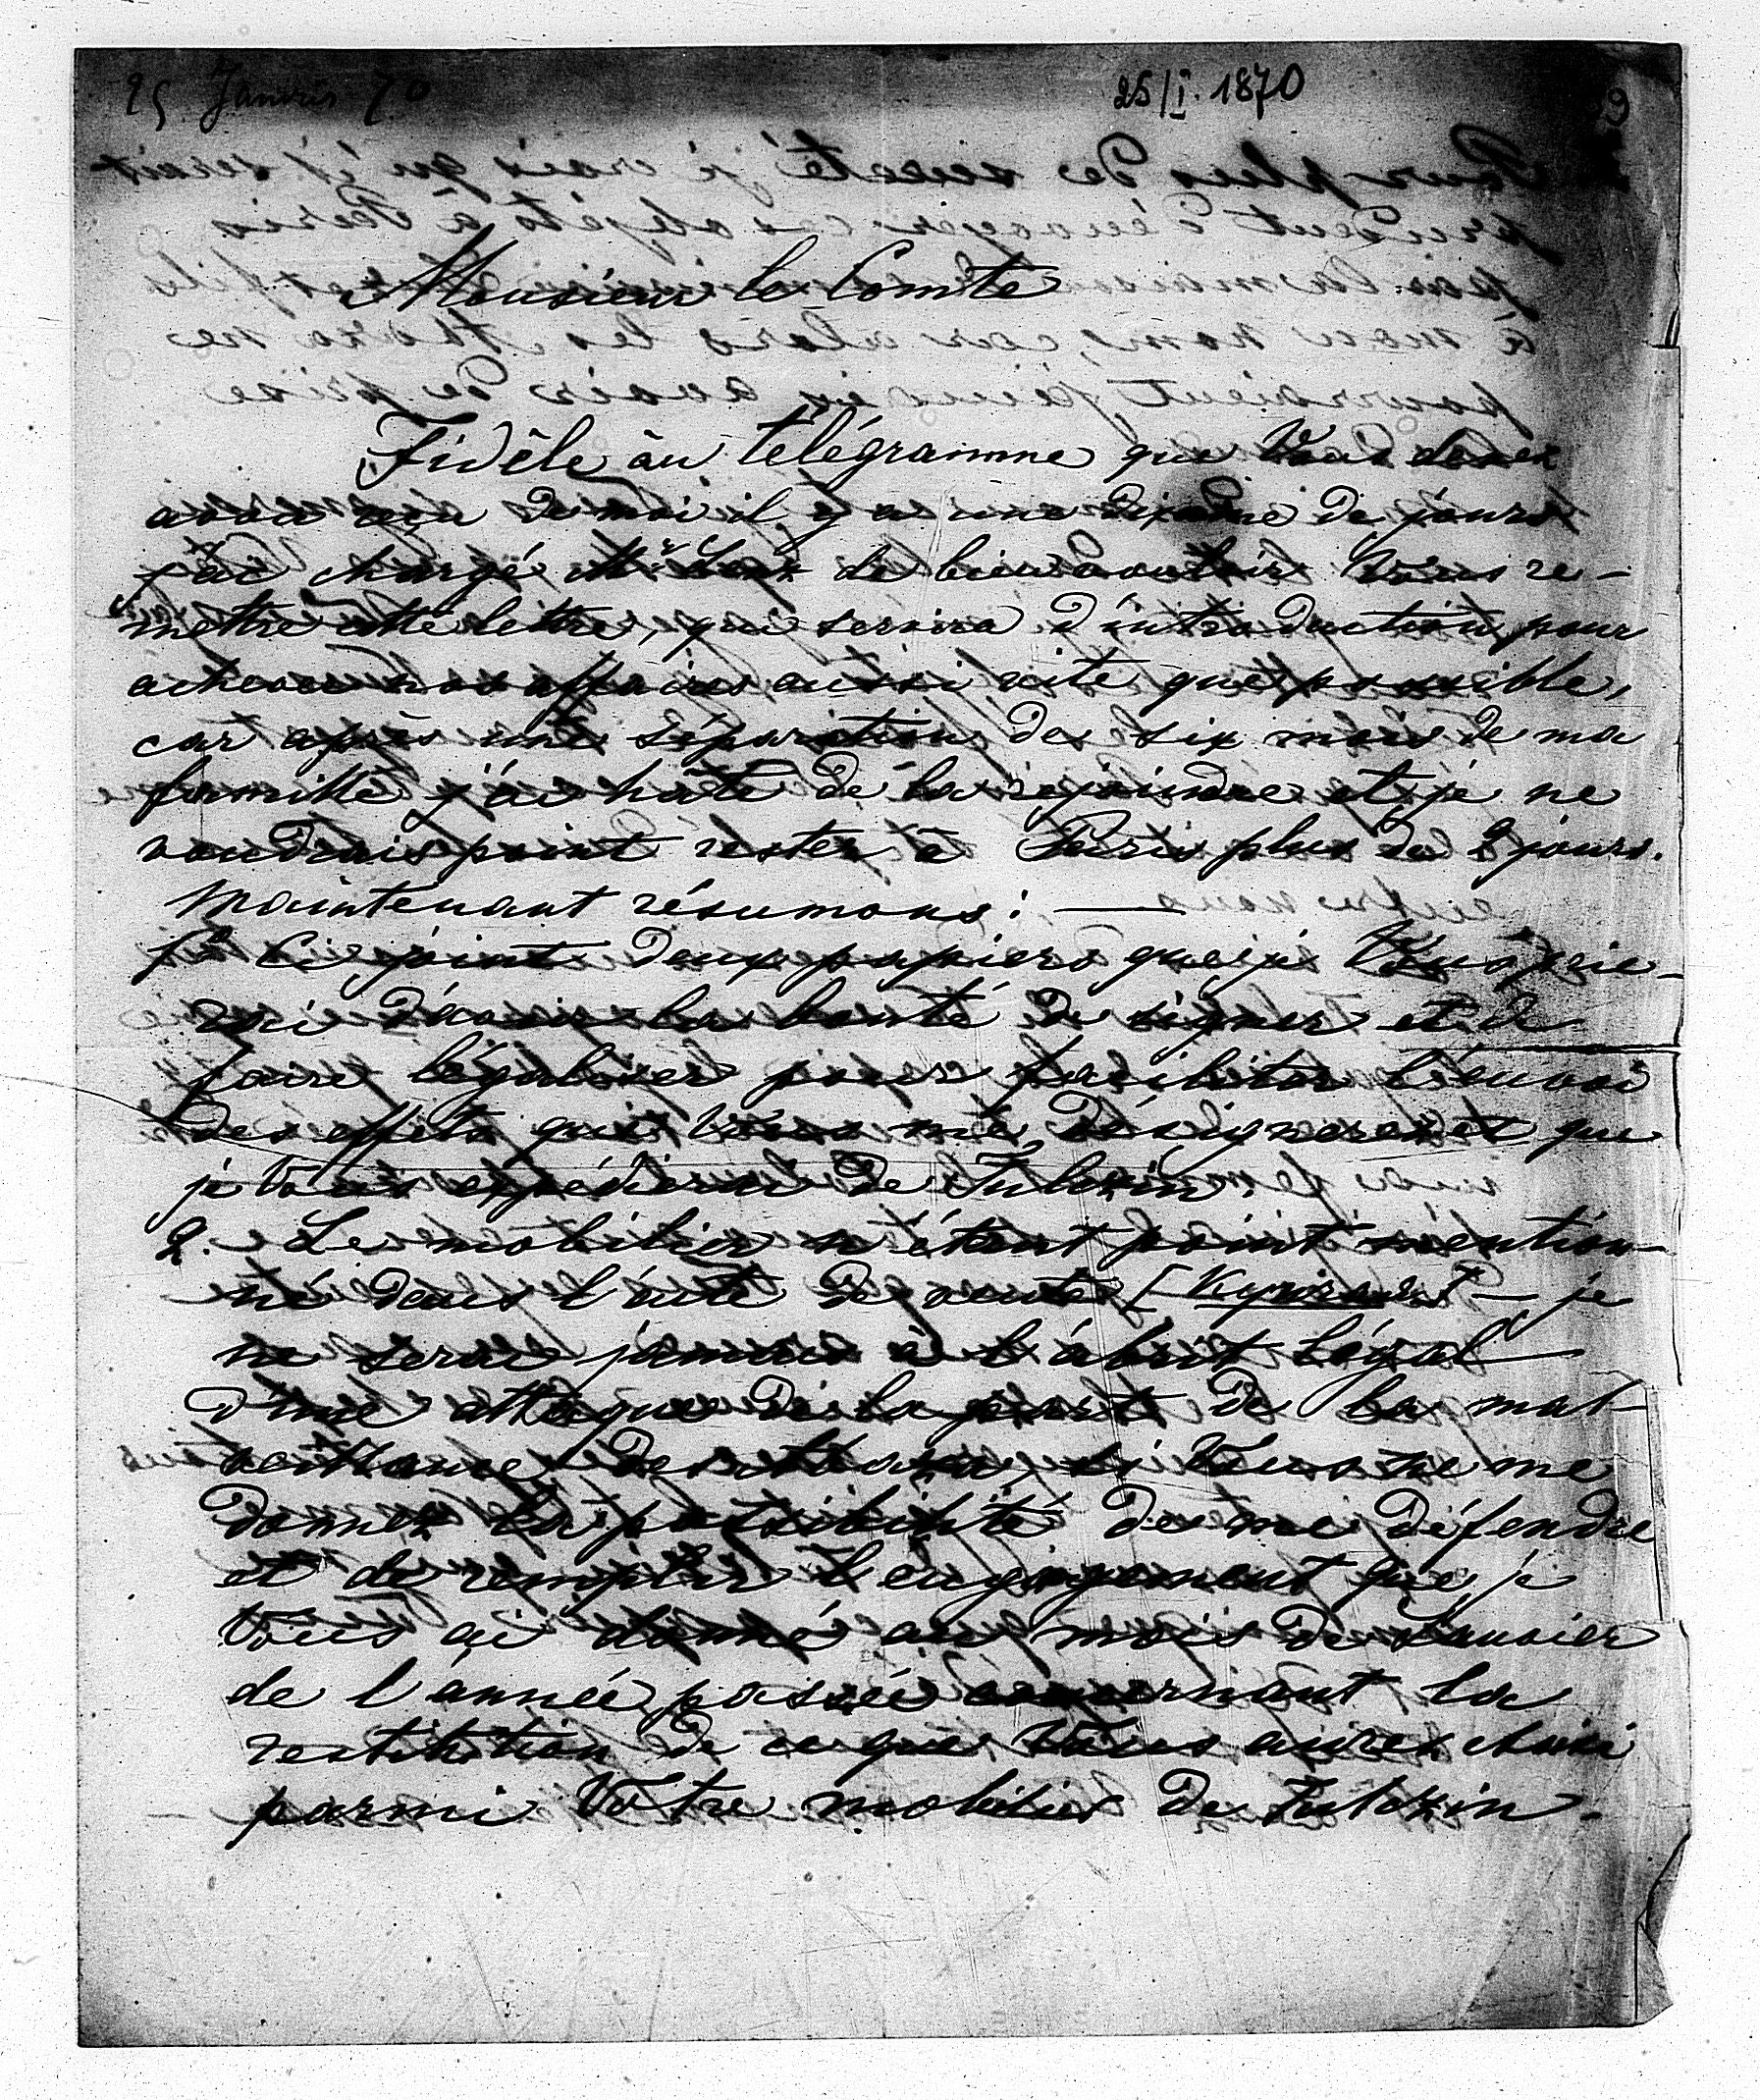 25 Janvier 70
25/I. 1870
Monsieur le Comte
Fidèle au télégramme que Vous devez
avoir reçu de moi il y a une dixaine de jours
j'ai chargé Mr de bien vouloir Vous re-
mettre cette lettre, qui servira d'introduction pour
achever nos affaires aussi vite que possible,
car après une séparation de six mois de ma
famille j'ai hâte de la rejoindre et je ne
voudrais point rester à Paris plus de 2 jours.
Maintenant résumons: —
1º Ci joint deux papiers que je Vous prie-
rai d'avoir la bonté de signer et de
faire légaliser pour faciliter l'envoi
des effets que Vous me désignerez et que
je Vous expédierai de Tulczin.
2. Le mobilier n'étant point mention-
né dans l'acte de vente — je
ne serai jamais à l'abrit légal —
d'une attaque de la part de la mal-
veillance des , si Vous ne me
donnez la possibilité de me défendre
et de remplir l'engagement que je
Vous ai donné au mois de Janvier
de l'année passée concernant la
restitution de ce que Vous aurez choisi
parmi Votre mobilier de Tulczin.